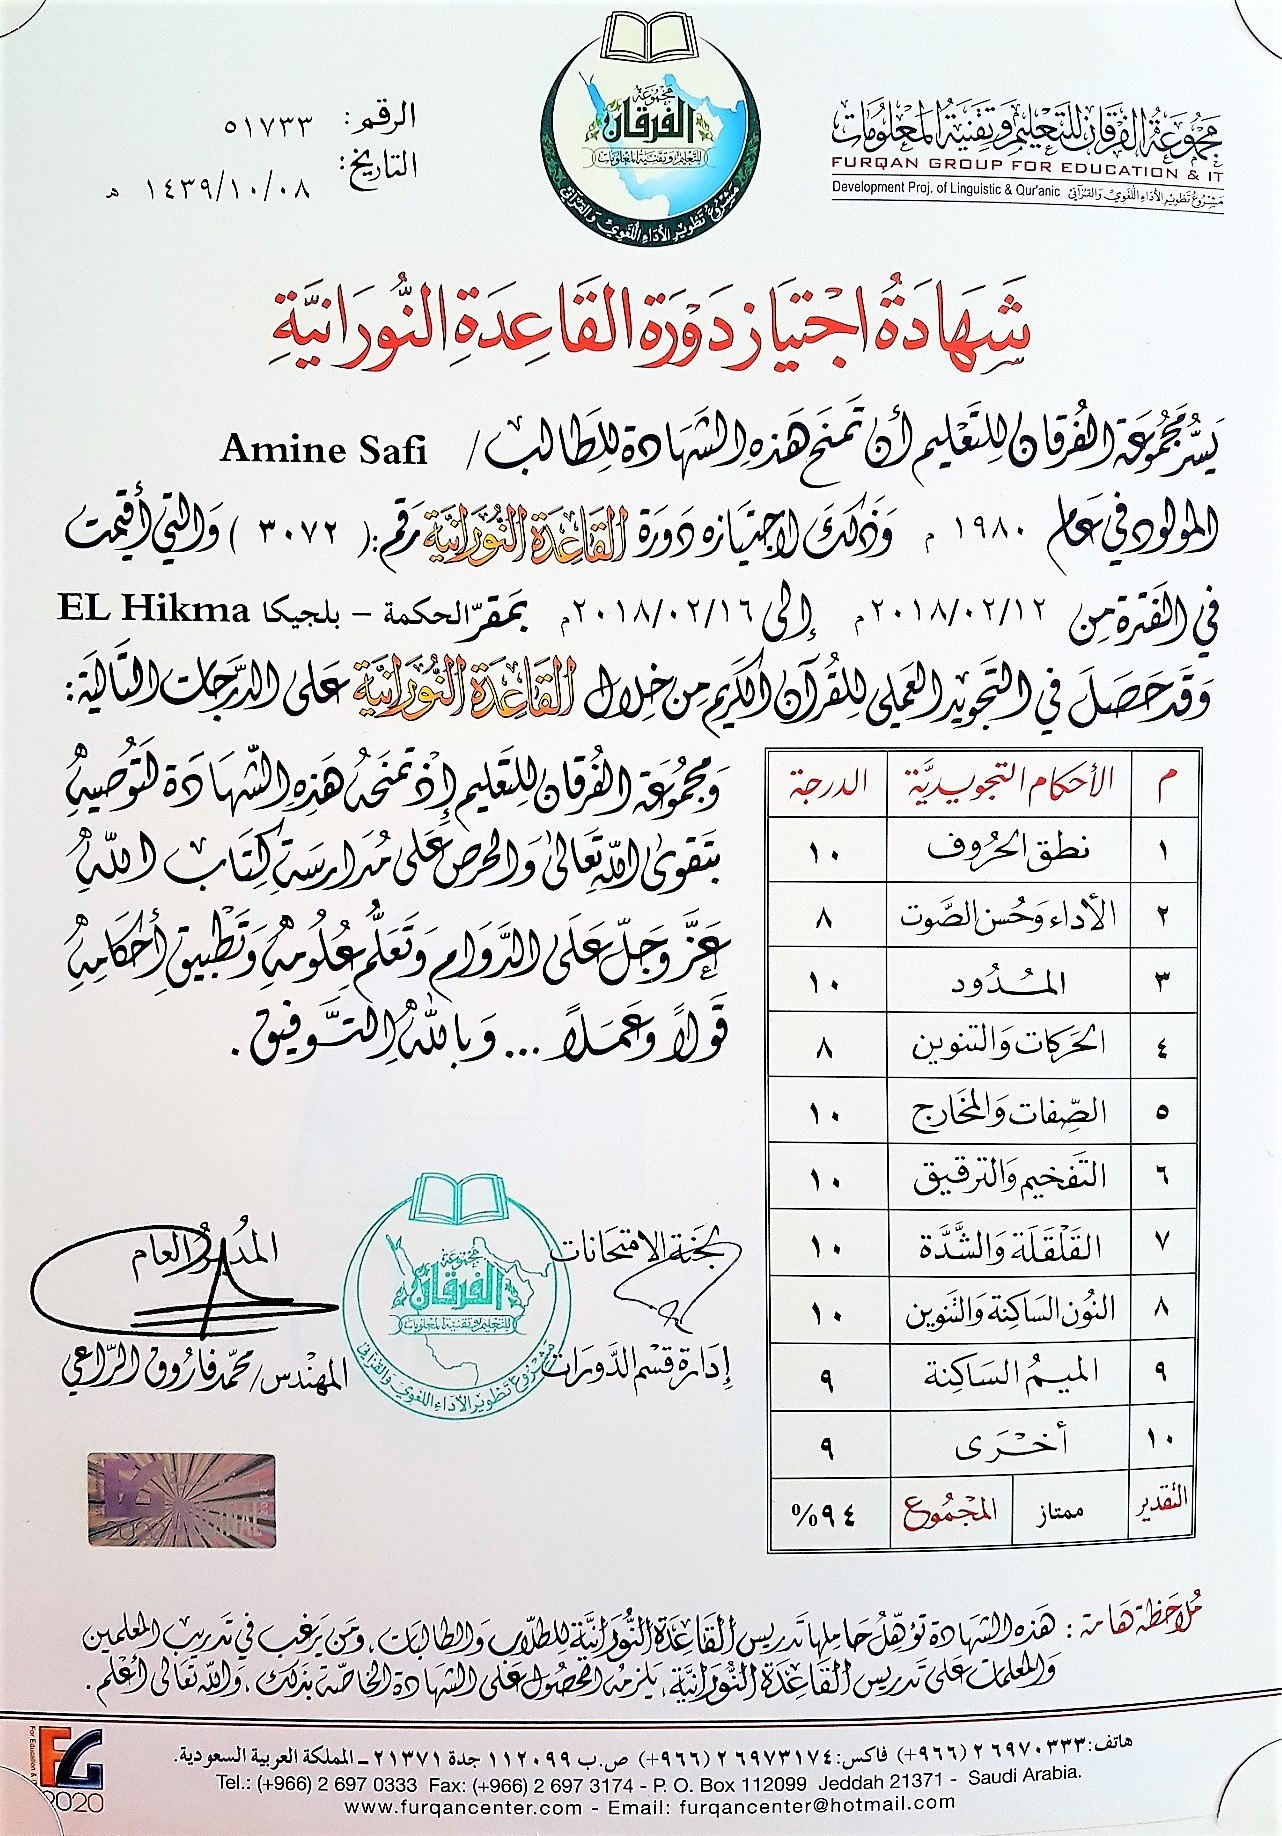 مجموعة الفرقان للتعليم وتقنية المعلومات
FURQAN GROUP FOR EDUCATION & IT
Development Proj. of Linguistic & Qur'anic مشروع تطوير الأداء اللغوي والقرآني
مجموعة
الفرقان
للتعليم وتقنية المعلومات
مشروع تطوير الأداء اللغوي والقرآني
الرقم: ٥١٧٣٣
التاريخ: ١٤٣٩/١٠/٠٨ هـ
شَهَادَةُ اجْتِيَاز دَوْرَة القَاعِدَةِ النُّورَانِيَّةِ
يَسُرُّ مَجْمُوعَة الفُرقَان لِلتَّعْلِيم أَن تَمنَح هَذِهِ الشَّهَادَة لِلطَالب / Amine Safi
المولود في عَام ١٩٨٠ م وَذَلكَ لاجْتيَازه دَورَة القَاعدَة النُّورَانيَّة رَقم: ( ٣٠٧٢ ) وَالتي أُقيمَت
في الفَترَة مِن ٢٠١٨/٠٢/١٢م إلى ٢٠١٨/٠٢/١٦م بمَقرّ الحكمة - بلجيكا EL Hikma
وَقَد حَصَلَ في التَّجويد العَملي للقُرآن الكَريم مِن خِلال القَاعدَة النُّورَانيَّة عَلى الدَّرَجَات التَّاليَة:
م | الأحكام التجويديَّة | الدرجة
١ | نطق الحُرُوف | ١٠
٢ | الأداء وَحُسن الصَّوت | ٨
٣ | المُدُود | ١٠
٤ | الحَركَات وَالتنوين | ٨
٥ | الصِّفات وَالمخَارج | ١٠
٦ | التَفخيم وَالترقيق | ١٠
٧ | القَلْقَلَة وَالشَّدَّة | ١٠
٨ | النُون السَاكِنة وَالتَنوين | ١٠
٩ | الميمُ السَاكِنة | ٩
١٠ | أخْرَى | ٩
التقدير | ممتاز | المجْمُوع | ٩٤%
وَمَجْمُوعَة الفُرقَان للتَعليم إِذْ تمنَحُه هَذِهِ الشَّهَادَة لتُوصيهِ
بتَقوىٰ اللّه تعَالىٰ وَالحرص عَلى مُدَارسَة كِتَاب اللّهِ
عَزَّ وَجَلّ عَلَى الدَّوَام وَتَعَلُّم عُلُومهِ وَتَطْبيق أَحكَامِهِ
قَولاً وَعَمَلاً ... وَبِاللّهِ التَّوفيق.
لجنَة الامتحَانَات
إدَارَة قسم الدَّورَات
مجموعة
الفرقان
للتعليم وتقنية المعلومات
مشروع تطوير الأداء اللغوي والقرآني
المُديرُ العَام
المهَنْدس/ محمّد فَارُوق الرَّاعي
مُلاحَظة هَامة: هَذه الشهَادة تؤهِّل حَاملهَا تَدريس القَاعدَة النُّورَانيَّة للطلّاب وَالطَالبَات، وَمَن يَرغَب في تَدريب المعَلمين
وَالمعَلمات عَلى تَدريس القَاعدَة النُّورَانيَّة، يَلزمهُ الحصُول عَلى الشهَادة الخَاصّة بذَلك، وَاللّه تعَالى أعْلم.
هاتف: ٢٦٩٧٠٣٣٣ (٩٦٦+) فاكس: ٢٦٩٧٣١٧٤ (٩٦٦+) ص.ب ١١٢٠٩٩ جدة ٢١٣٧١ - المملكة العربية السعودية.
Tel.: (+966) 2 697 0333 Fax: (+966) 2 697 3174 - P. O. Box 112099 Jeddah 21371 - Saudi Arabia.
www.furqancenter.com - Email: furqancenter@hotmail.com
FG
2020